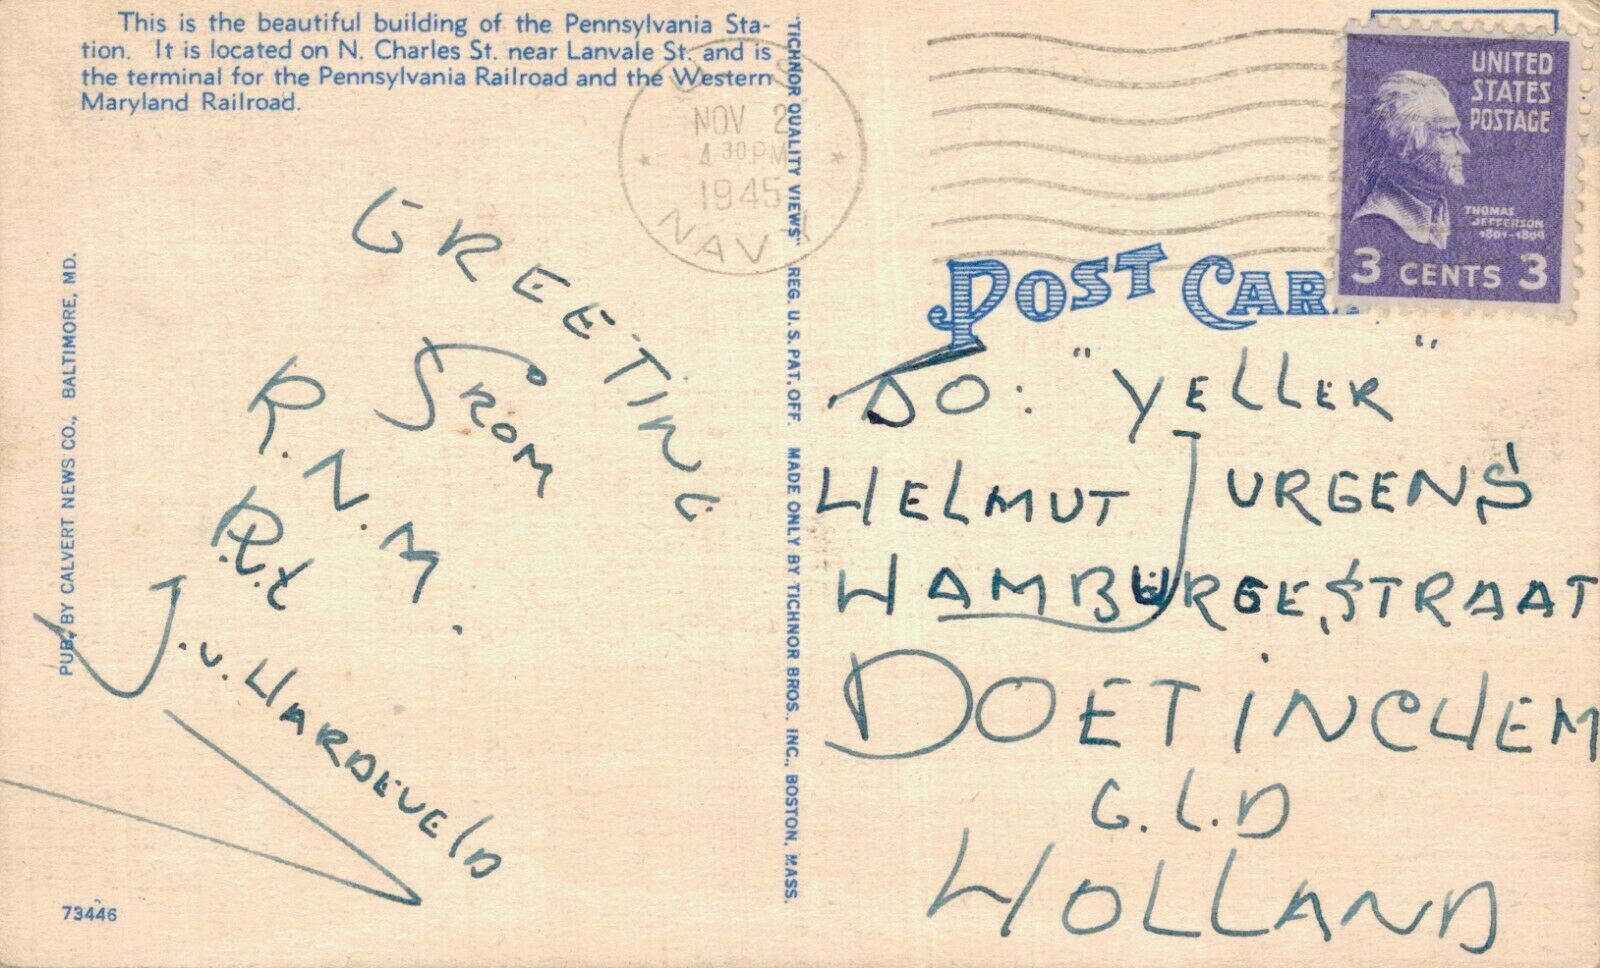 This is the beautiful building of the Pennsylvania Sta-
tion. It is located on N. Charles St. near Lanvale St. and is
the terminal for the Pennsylvania Railroad and the Western
Maryland Railroad.
PUB. BY CALVERT NEWS CO., BALTIMORE, MD.
73446
GREETING
FROM
R.N.M.
J.v. HARDEVELD
"TICHNOR QUALITY VIEWS" REG. U. S. PAT. OFF. MADE ONLY BY TICHNOR BROS., INC., BOSTON, MASS.
U. S.
NOV 2
4 30 PM
1945
NAVY
UNITED
STATES
POSTAGE
THOMAS
JEFFERSON
1801-1809
3 CENTS 3
POST CAR
TO: "YELLER"
HELMUT JURGENS
HAMBURGESTRAAT
DOETINCHEM
G.L.D
HOLLAND